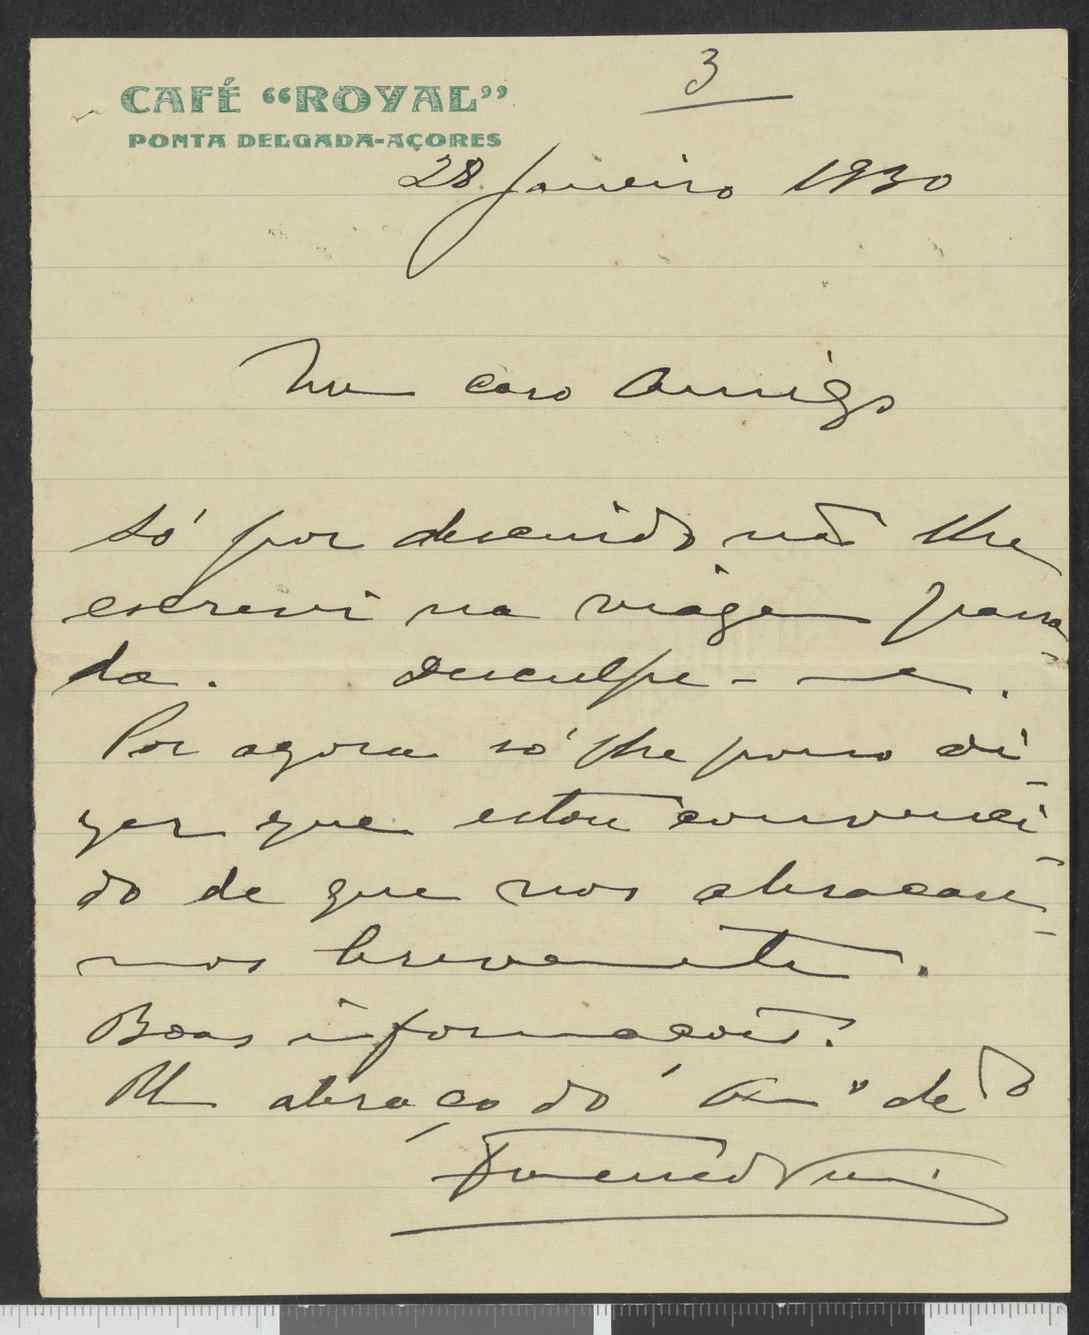 3
CAFÉ “ROYAL”
PONTA DELGADA-AÇORES
28 Janeiro 1930
Meu caro Amigo
Só por descuido não lhe
escrevi na viagem passa-
da. Desculpe-me.
Por agora só lhe posso di-
zer que estou convenci-
do de que nos abraçare-
mos brevemente.
Boas informações.
Um abraço do Amº dedº